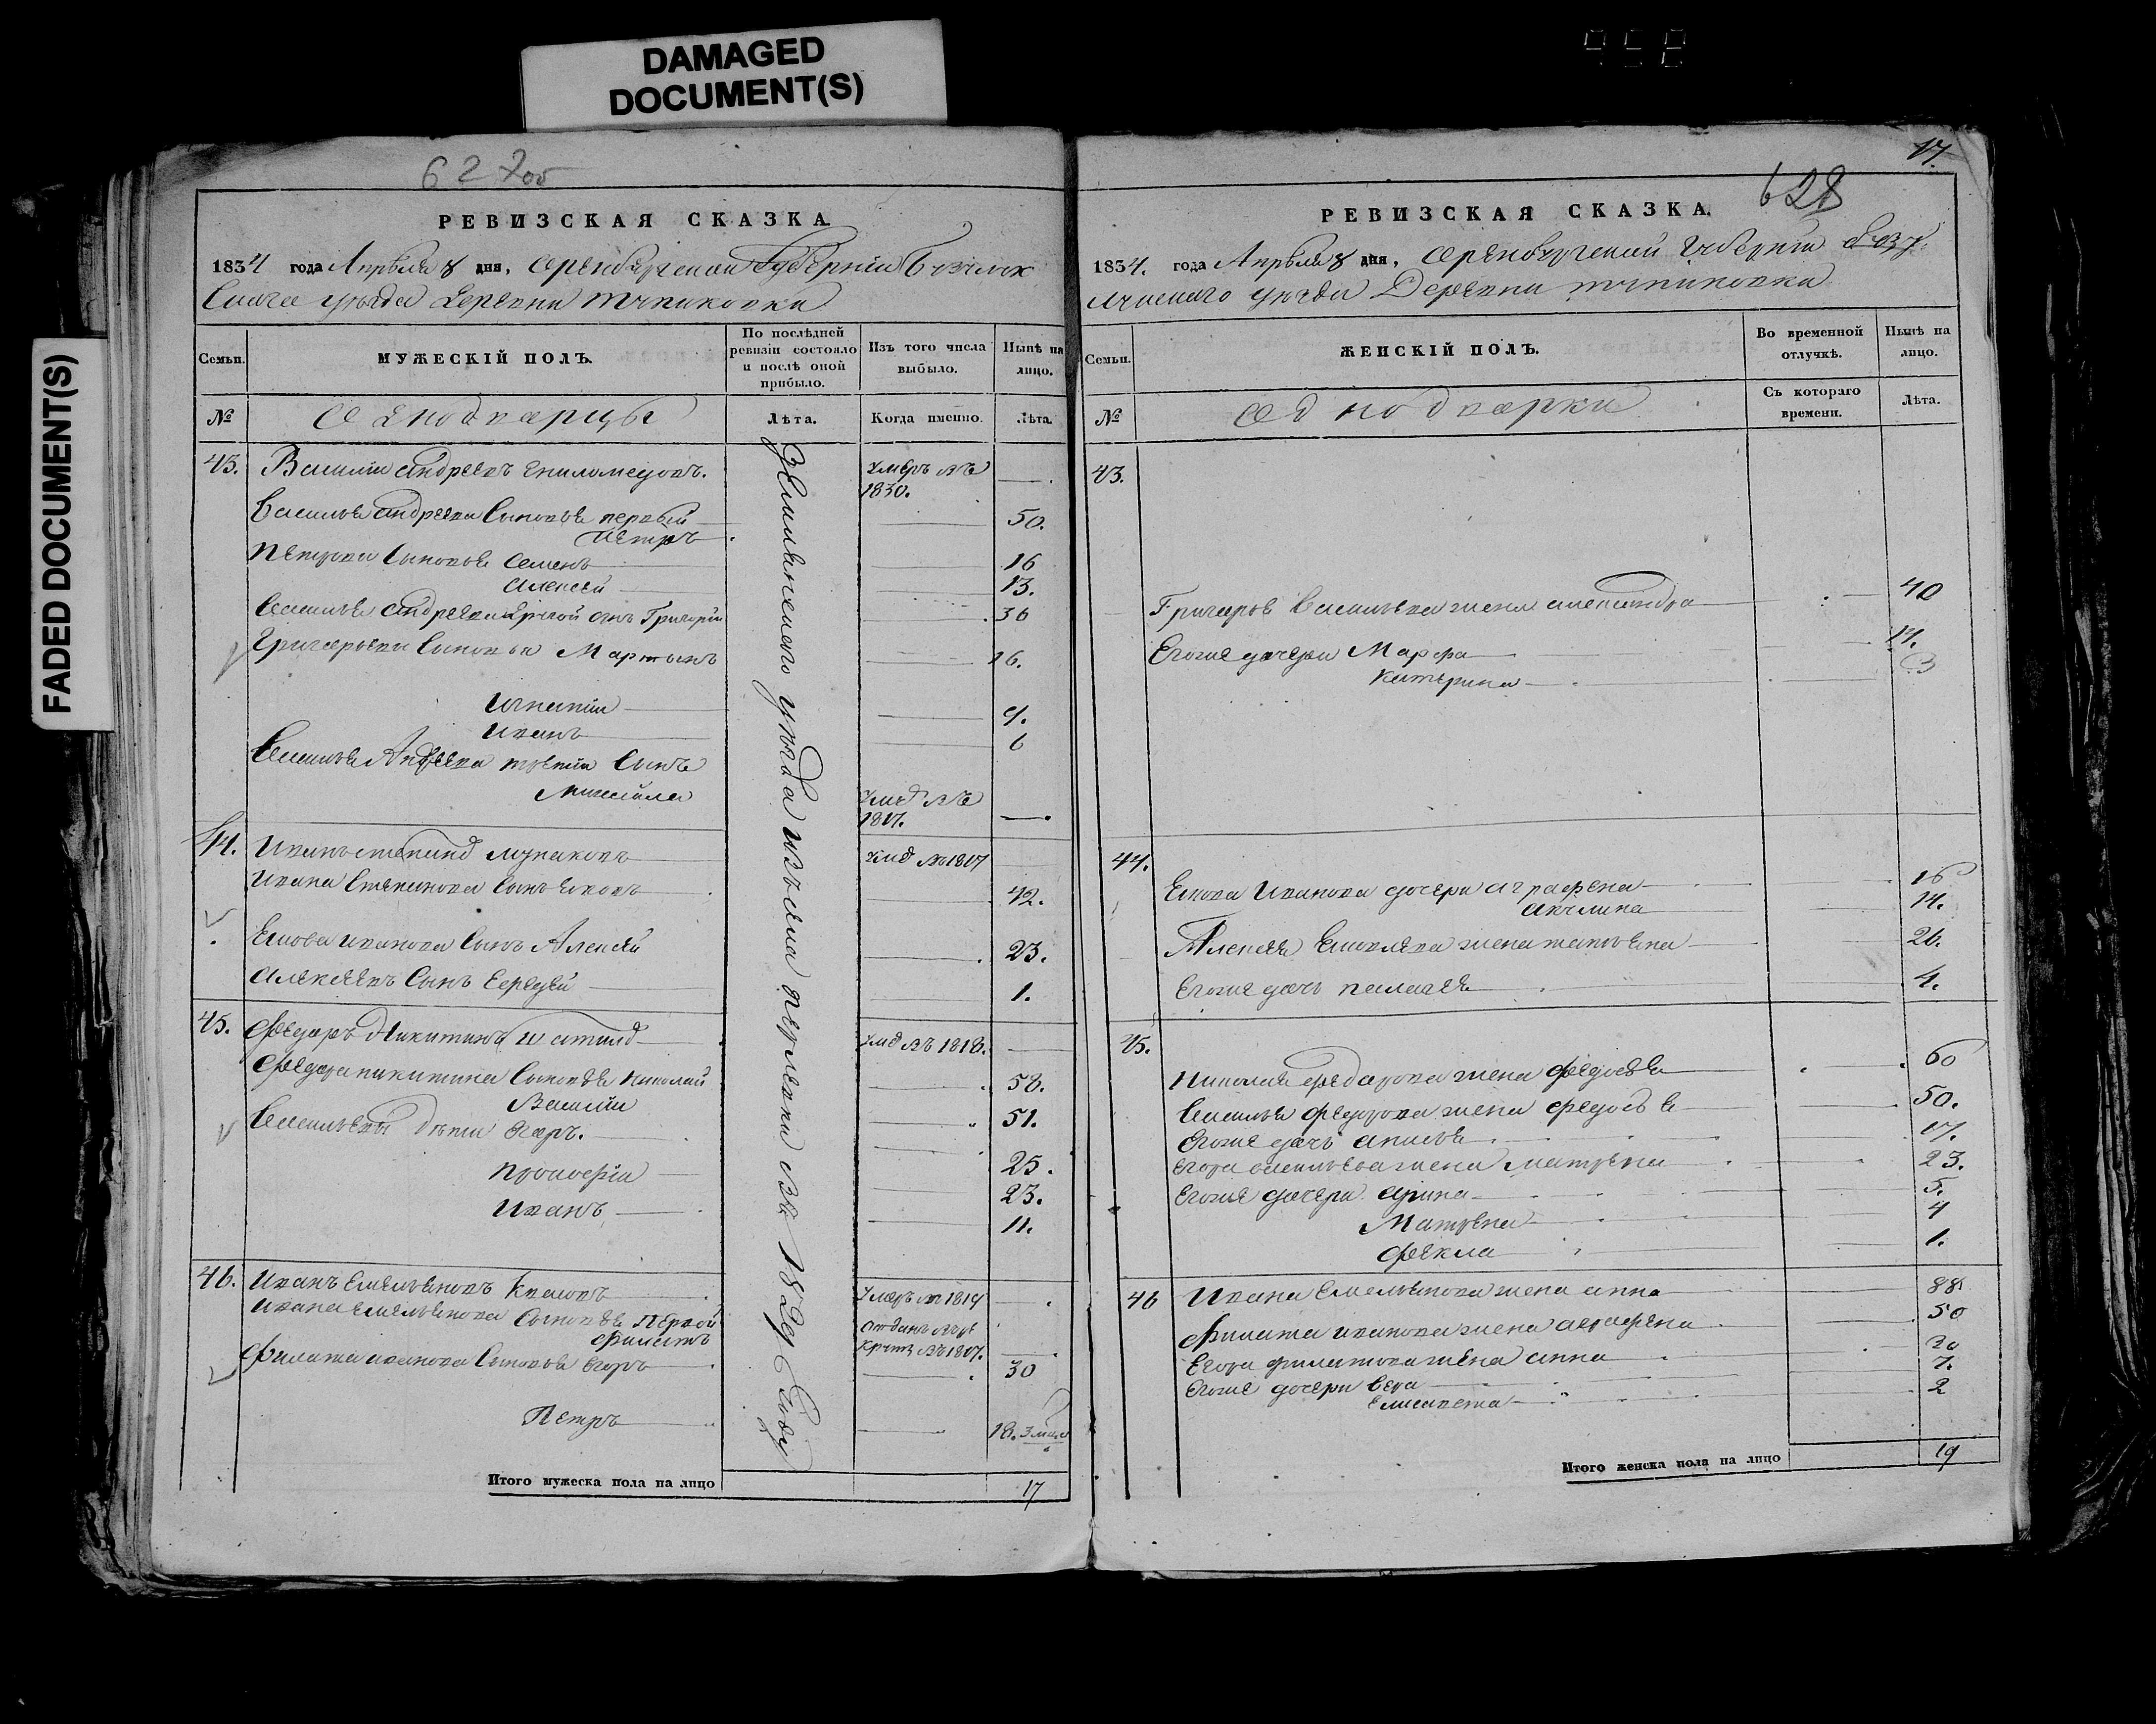 DAMAGED
DOCUMENT(S)
FADED DOCUMENT(S)
627об
РЕВИЗСКАЯ СКАЗКА
1834 года Апреля 8 дня, Оренбургской Губернии Бузулук
скаго уезда деревни
Семьи.
МУЖЕСКІЙ ПОЛЪ.
По послѣдней ревизіи состояло и послѣ оной прибыло.
Изъ того числа выбыло.
Нынѣ на лицо.
№
Однодворцы
Лѣта.
Когда именно.
Лѣта.
Землянского уезда
1829 году
43. Василий Андреевъ умеръ въ
1830.
Василья Андреева сыновья первый 50.
Петръ
Петрова сыновья Семенъ 16
Алексей 13.
Василья Андреева другой сынъ Григорий 36
Григорьевы сыновья Мартынъ 16.
Игнатий 9.
Иванъ 6
Василья Андреева третий сынъ
Михайла
умеръ въ
1817.
44. Иванъ Степановъ 1817
Ивана Степанова сынъ Яковъ 42.
Якова Иванова сынъ Алексей 23.
Алексеевъ сынъ Сергей 1.
45. Федоръ Никитинъ въ 1818.
Федора Никитина сыновья Николай 58.
Василий 51.
Васильевы дети Егоръ. 25.
Прокофий 23.
Иванъ 11.
46. Иванъ Емельяновъ умеръ въ 1814
Ивана Емельянова сыновья первой отданъ въ ре
Филатъ круты въ 1817.
Филата Иванова сыновья Егоръ 30
Петръ 18.
Итого мужеска пола на лицо 17
17.
628
РЕВИЗСКАЯ СКАЗКА.
1834. года Апреля 8 дня, Оренбургской Губернии Бузу
лукского уезда Деревни
Семьи.
ЖЕНСКІЙ ПОЛЪ.
Во временной отлучкѣ.
Нынѣ на лицо.
№
Однодворки
Съ котораго времени.
Лѣта.
43.
Григорья Васильева жена Александра 40
Егоже дочери Марфа 14.
Катерина 3
44.
Якова Иванова дочери Аграфена 16
Акулина 14.
Алексея Яковлева жена 26.
Егоже дочь Палагея 4.
45.
Николая Федорова жена Федосья 60
Василья Федорова жена Федосья 50.
Егоже дочь 17.
Егора Васильева жена Матрена 23.
Егоже дочери Арина 5.
Матрена 4
Фекла 1.
46 Ивана Емельянова жена Анна 88.
Филата Иванова жена Аграфена 50
Егора Филатова жена Анна 30
Егоже дочери Вера 7.
Елисавета 2
Итого женска пола на лицо 19